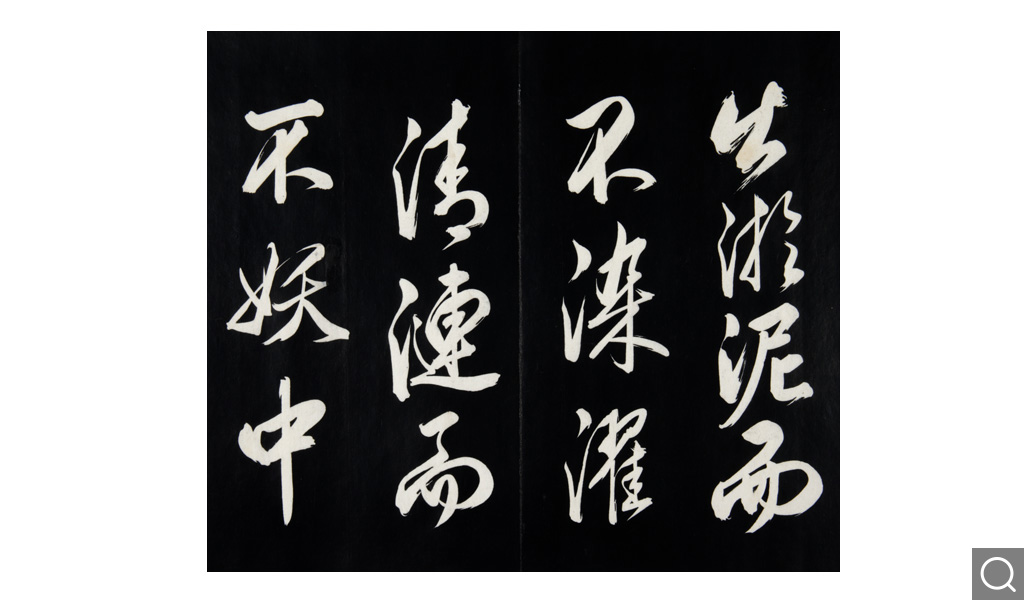 出淤泥而
不染濯
清漣而
不妖中